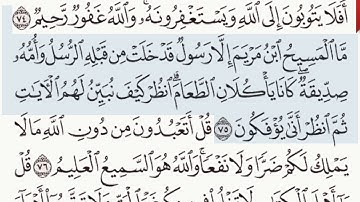 أَفَلَا يَتُوبُونَ إِلَى اللَّهِ وَيَسْتَغْفِرُونَهُ ۚ وَاللَّهُ غَفُورٌ رَّحِيمٌ ٧٤
مَّا الْمَسِيحُ ابْنُ مَرْيَمَ إِلَّا رَسُولٌ قَدْ خَلَتْ مِن قَبْلِهِ الرُّسُلُ وَأُمُّهُ
صِدِّيقَةٌ ۖ كَانَا يَأْكُلَانِ الطَّعَامَ ۗ انظُرْ كَيْفَ نُبَيِّنُ لَهُمُ الْآيَاتِ
ثُمَّ انظُرْ أَنَّىٰ يُؤْفَكُونَ ٧٥ قُلْ أَتَعْبُدُونَ مِن دُونِ اللَّهِ مَا لَا
يَمْلِكُ لَكُمْ ضَرًّا وَلَا نَفْعًا ۚ وَاللَّهُ هُوَ السَّمِيعُ الْعَلِيمُ ٧٦ قُلْ